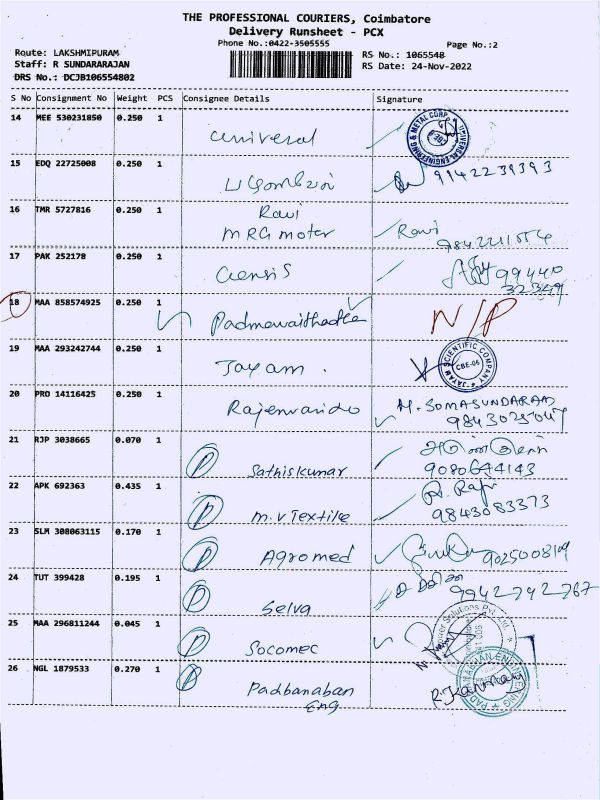 THE PROFESSIONAL COURIERS, Coimbatore
Delivery Runsheet - PCX
Phone No.:0422-3505555
Page No.:2
Route: LAKSHMIPURAM
RS No.: 1065548
Staff: R SUNDARARAJAN
RS Date: 24-Nov-2022
DRS No.: DCJB106554802
S No Consignment No Weight PCS Consignee Details Signature
14 MEE 530231850 0.250 1
universal
UNIVERSAL ENGINEERING & METAL CORP
15 EDQ 22725008 0.250 1
9942239393
16 TMR 5727816 0.250 1 Ravi
MRG motor Ravi
17 PAK 252178 0.250 1
99440
32349
18 MAA 858574925 0.250 1
N/P
19 MAA 293242744 0.250 1
Jayam.
JAYAM SCIENTIFIC COMPANY CBE-06
20 PRO 14116425 0.250 1
M. SOMASUNDARAM
21 RJP 3038665 0.070 1
P Sathiskumar
9080644143
22 APK 692363 0.435 1
P m.v Textile
9843083373
23 SLM 308063115 0.170 1
P Agromed
24 TUT 399428 0.195 1
P Selva 9942742767
25 MAA 296811244 0.045 1
P Socomec
26 NGL 1879533 0.270 1
P Padbanaban
Eng